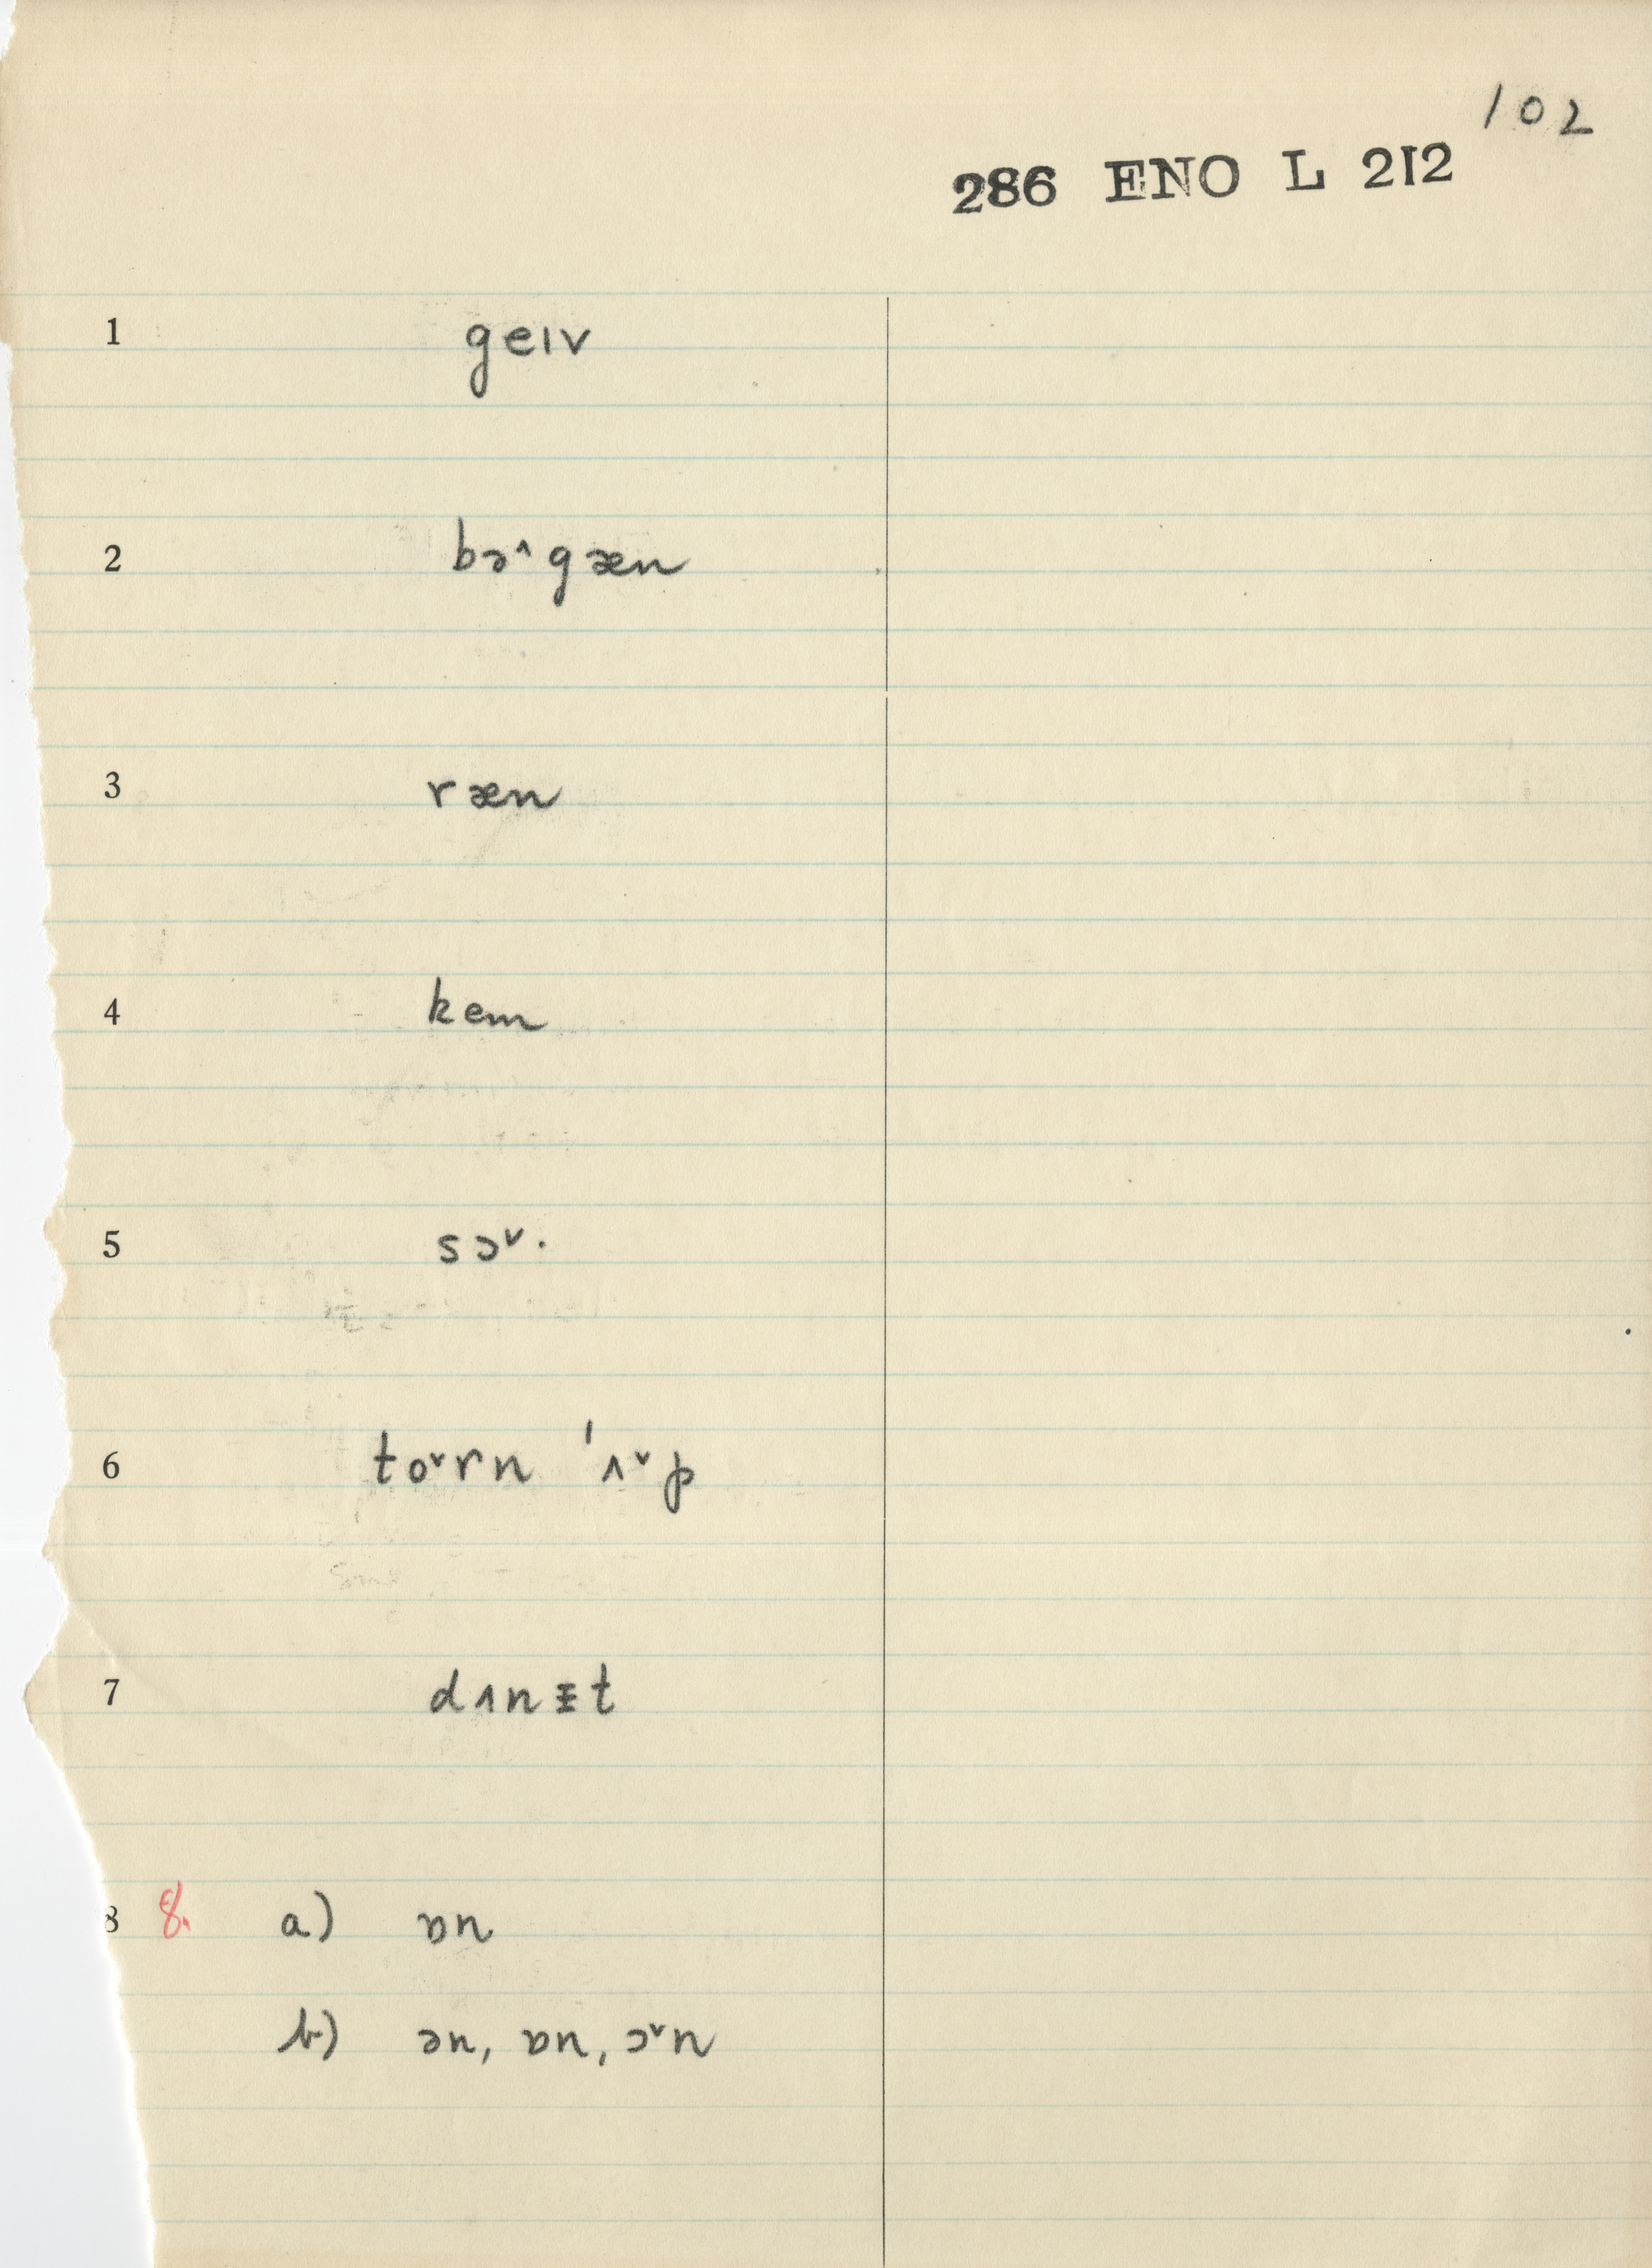 102
286 ENO L 212
1 geɪv
2 bə˄gæn
3 ræn
4 kem
5 sɔ˅·
6 to˅rn ˈʌ˅p
7 dʌnᵻt
8 8. a) ɒn
b) ən, ɒn, ɔ˅n